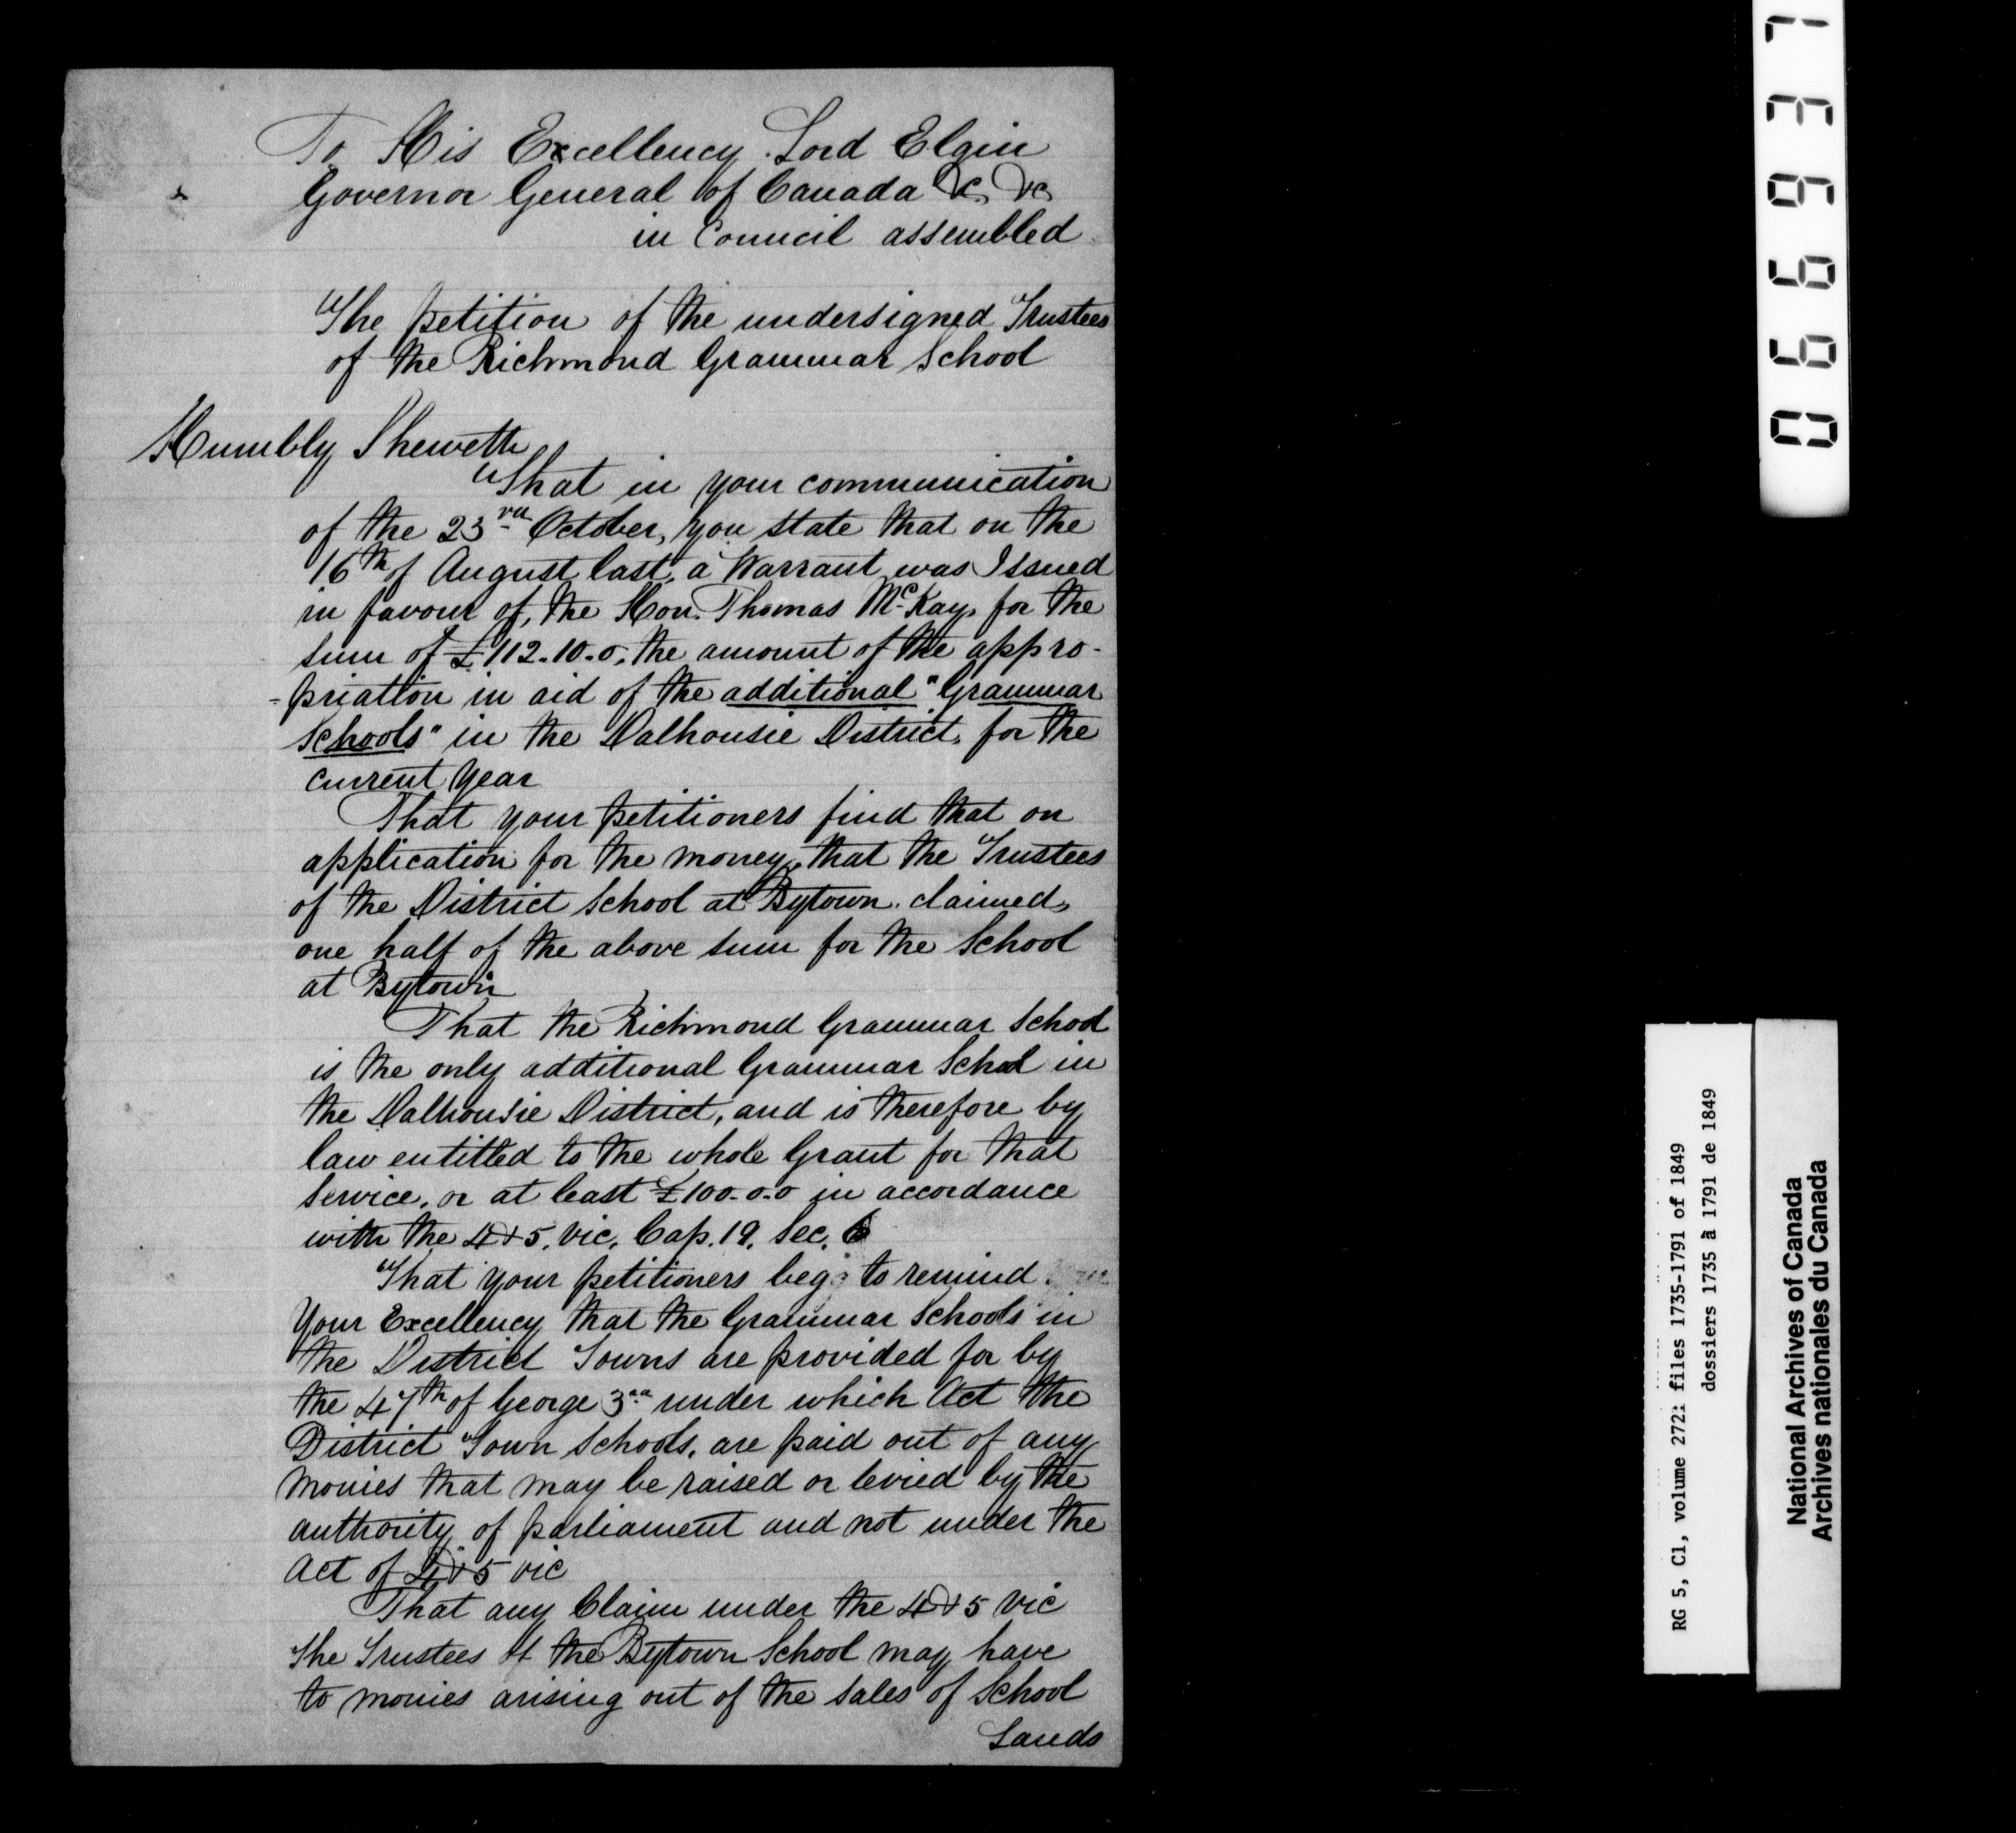 To His Excellency Lord Elgin
Governor General of Canada &c, &c,
in Council assembled
The petition of the undersigned Trustees
of the Richmond Grammar School
Humbly Sheweth
That in your communication
of the 23rd October, you state that on the
16th of August last, a Warrant was Issued
in favour of, the Hon. Thomas McKay, for the
sum of £112-10-0, the amount of the appro-
-priation in aid of the additional "Grammar
Schools" in the Dalhousie District, for the
current year
That your petitioners find that on
application for the money, that the Trustees
of the District School at Bytown claimed,
one half of the above sum for the School
at Bytown
That the Richmond Grammar School
is the only additional Grammar School in
the Dalhousie District, and is therefore by
law entitled to the whole Grant for that
service, or at least £100-0-0 in accordance
with the 4 & 5, Vic, Cap. 19, Sec, 6
That your petitioners beg to remind
Your Excellency that the Grammar Schools in
the District Towns are provided for by
the 47th of George 3rd under which Act the
District Town Schools, are paid out of any
monies that may be raised or levied by the
authority of parliament and not under the
Act of 4 & 5 Vic
That any Claim under the 4 & 5 Vic
the Trustees of the Bytown School may have
to monies arising out of the sales of School
Lands
066937
RG 5, C1, volume 272: files 1735-1791 of 1849
dossiers 1735 à 1791 de 1849
National Archives of Canada
Archives nationales du Canada